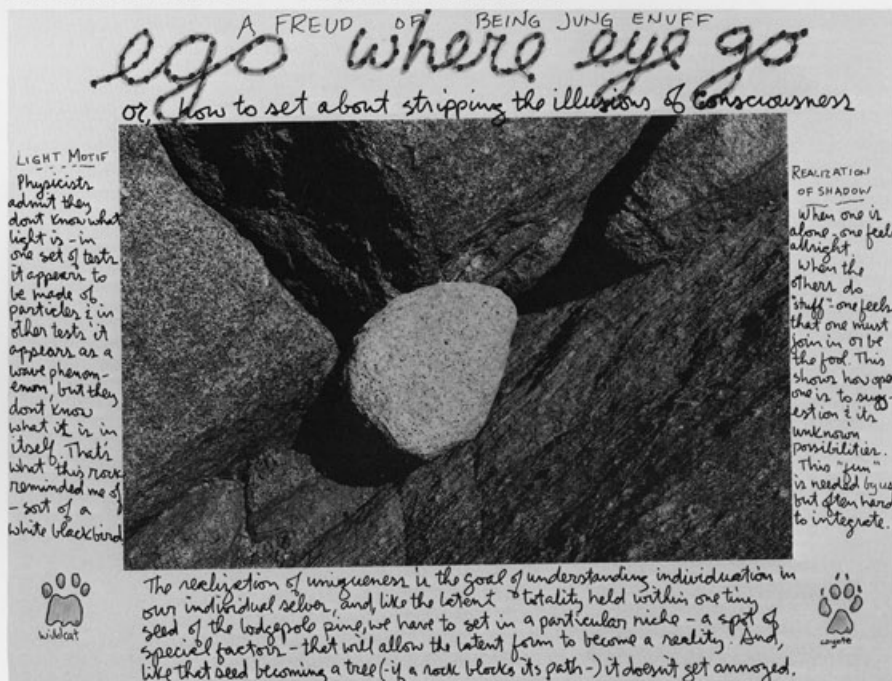 A FREUD OF BEING JUNG ENUFF
ego where eye go
or, how to set about stripping the illusions of Consciousness
LIGHT MOTIF
Physicists
admit they
dont know what
light is - in
one set of tests
it appears to
be made of
particles & in
other tests it
appears as a
wave phenom-
enon, but they
dont know
what it is in
itself. That's
what this rock
reminded me of
- sort of a
white blackbird
REALIZATION
OF SHADOW
When one is
alone - one feels
allright.
When the
others do
"stuff" - one feels
that one must
join in or be
the fool. This
shows how open
one is to sugg-
estion & its
unknown
possibilities.
This "fun"
is needed by us
but often hard
to integrate.
wildcat
The realization of uniqueness is the goal of understanding individuation in
our individual selves, and, like the latent totality held within one tiny
seed of the lodgepole pine, we have to set in a particular niche - a spot of
special factors - that will allow the latent form to become a reality. And,
like that seed becoming a tree (- if a rock blocks its path -) it doesn't get annoyed.
coyote